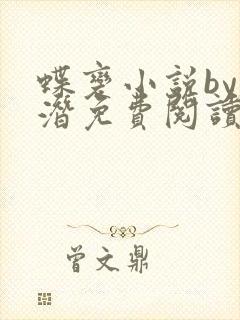 蝶变小说by
潜免费阅读
曾文鼎